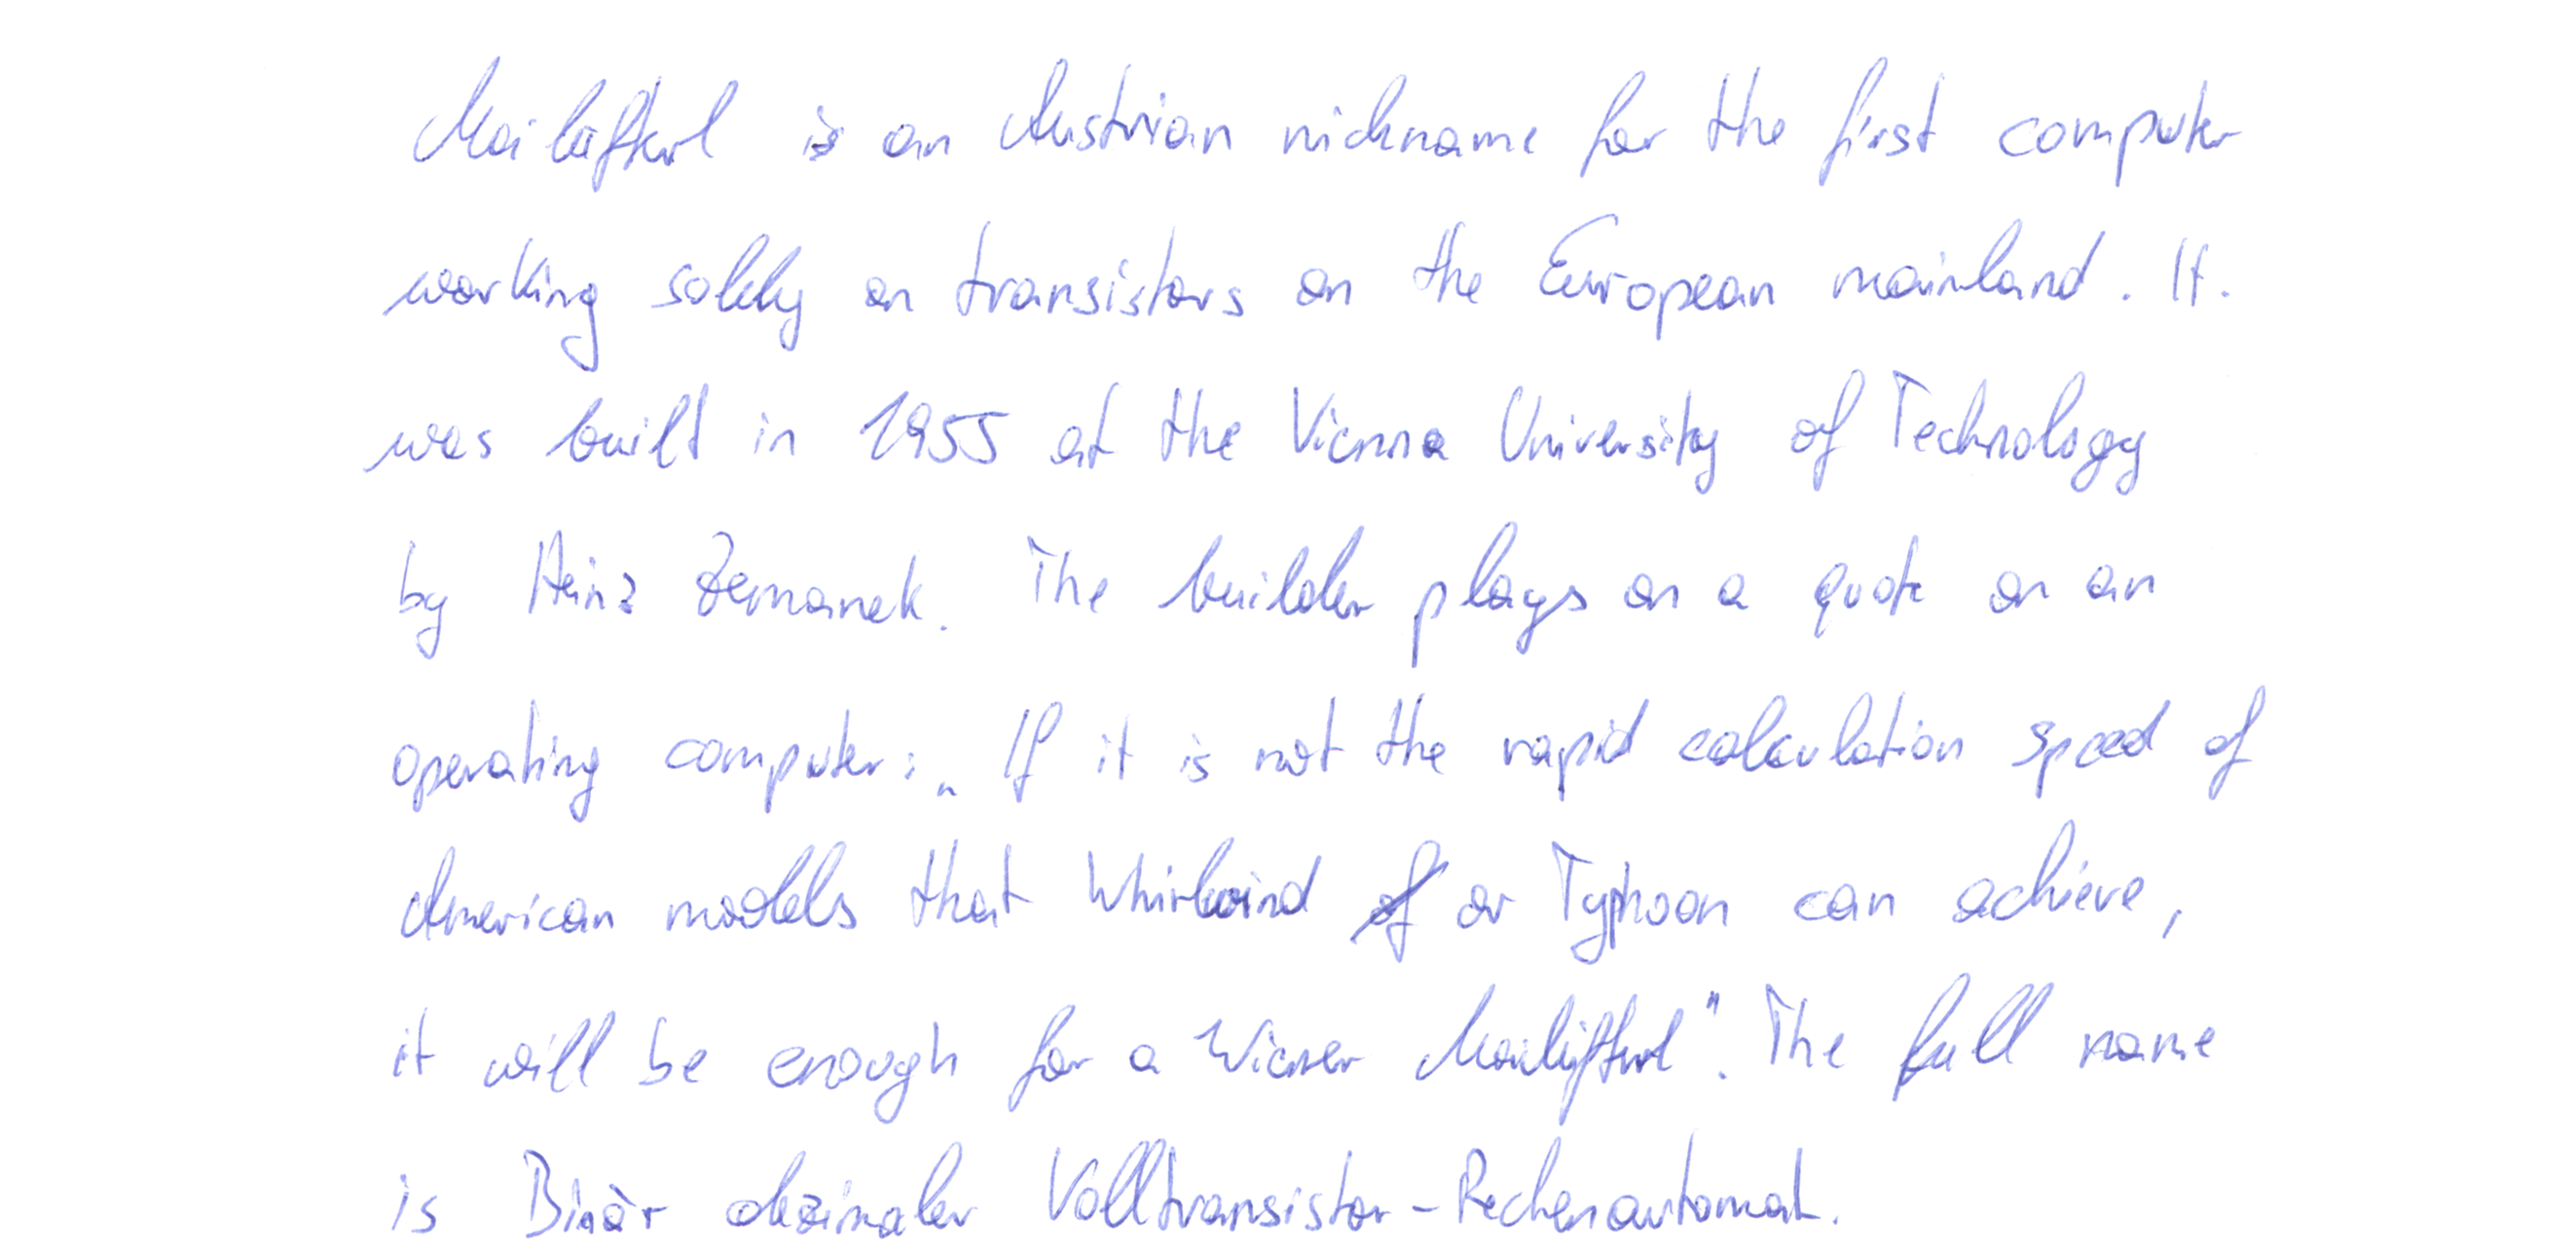 Mailüfterl is an Austrian nickname for the first computer
working solely on transistors on the European mainland. It.
was built in 1955 at the Vienna University of Technology
by Heinz Zemanek. The builder plays on a quote on an
operating computer: „If it is not the rapid calculation speed of
American models that Whirlwind or Typhoon can achieve,
it will be enough for a Wiener Mailüfterl". The full name
is Binär dezimaler Volltransistor-Rechenautomat.